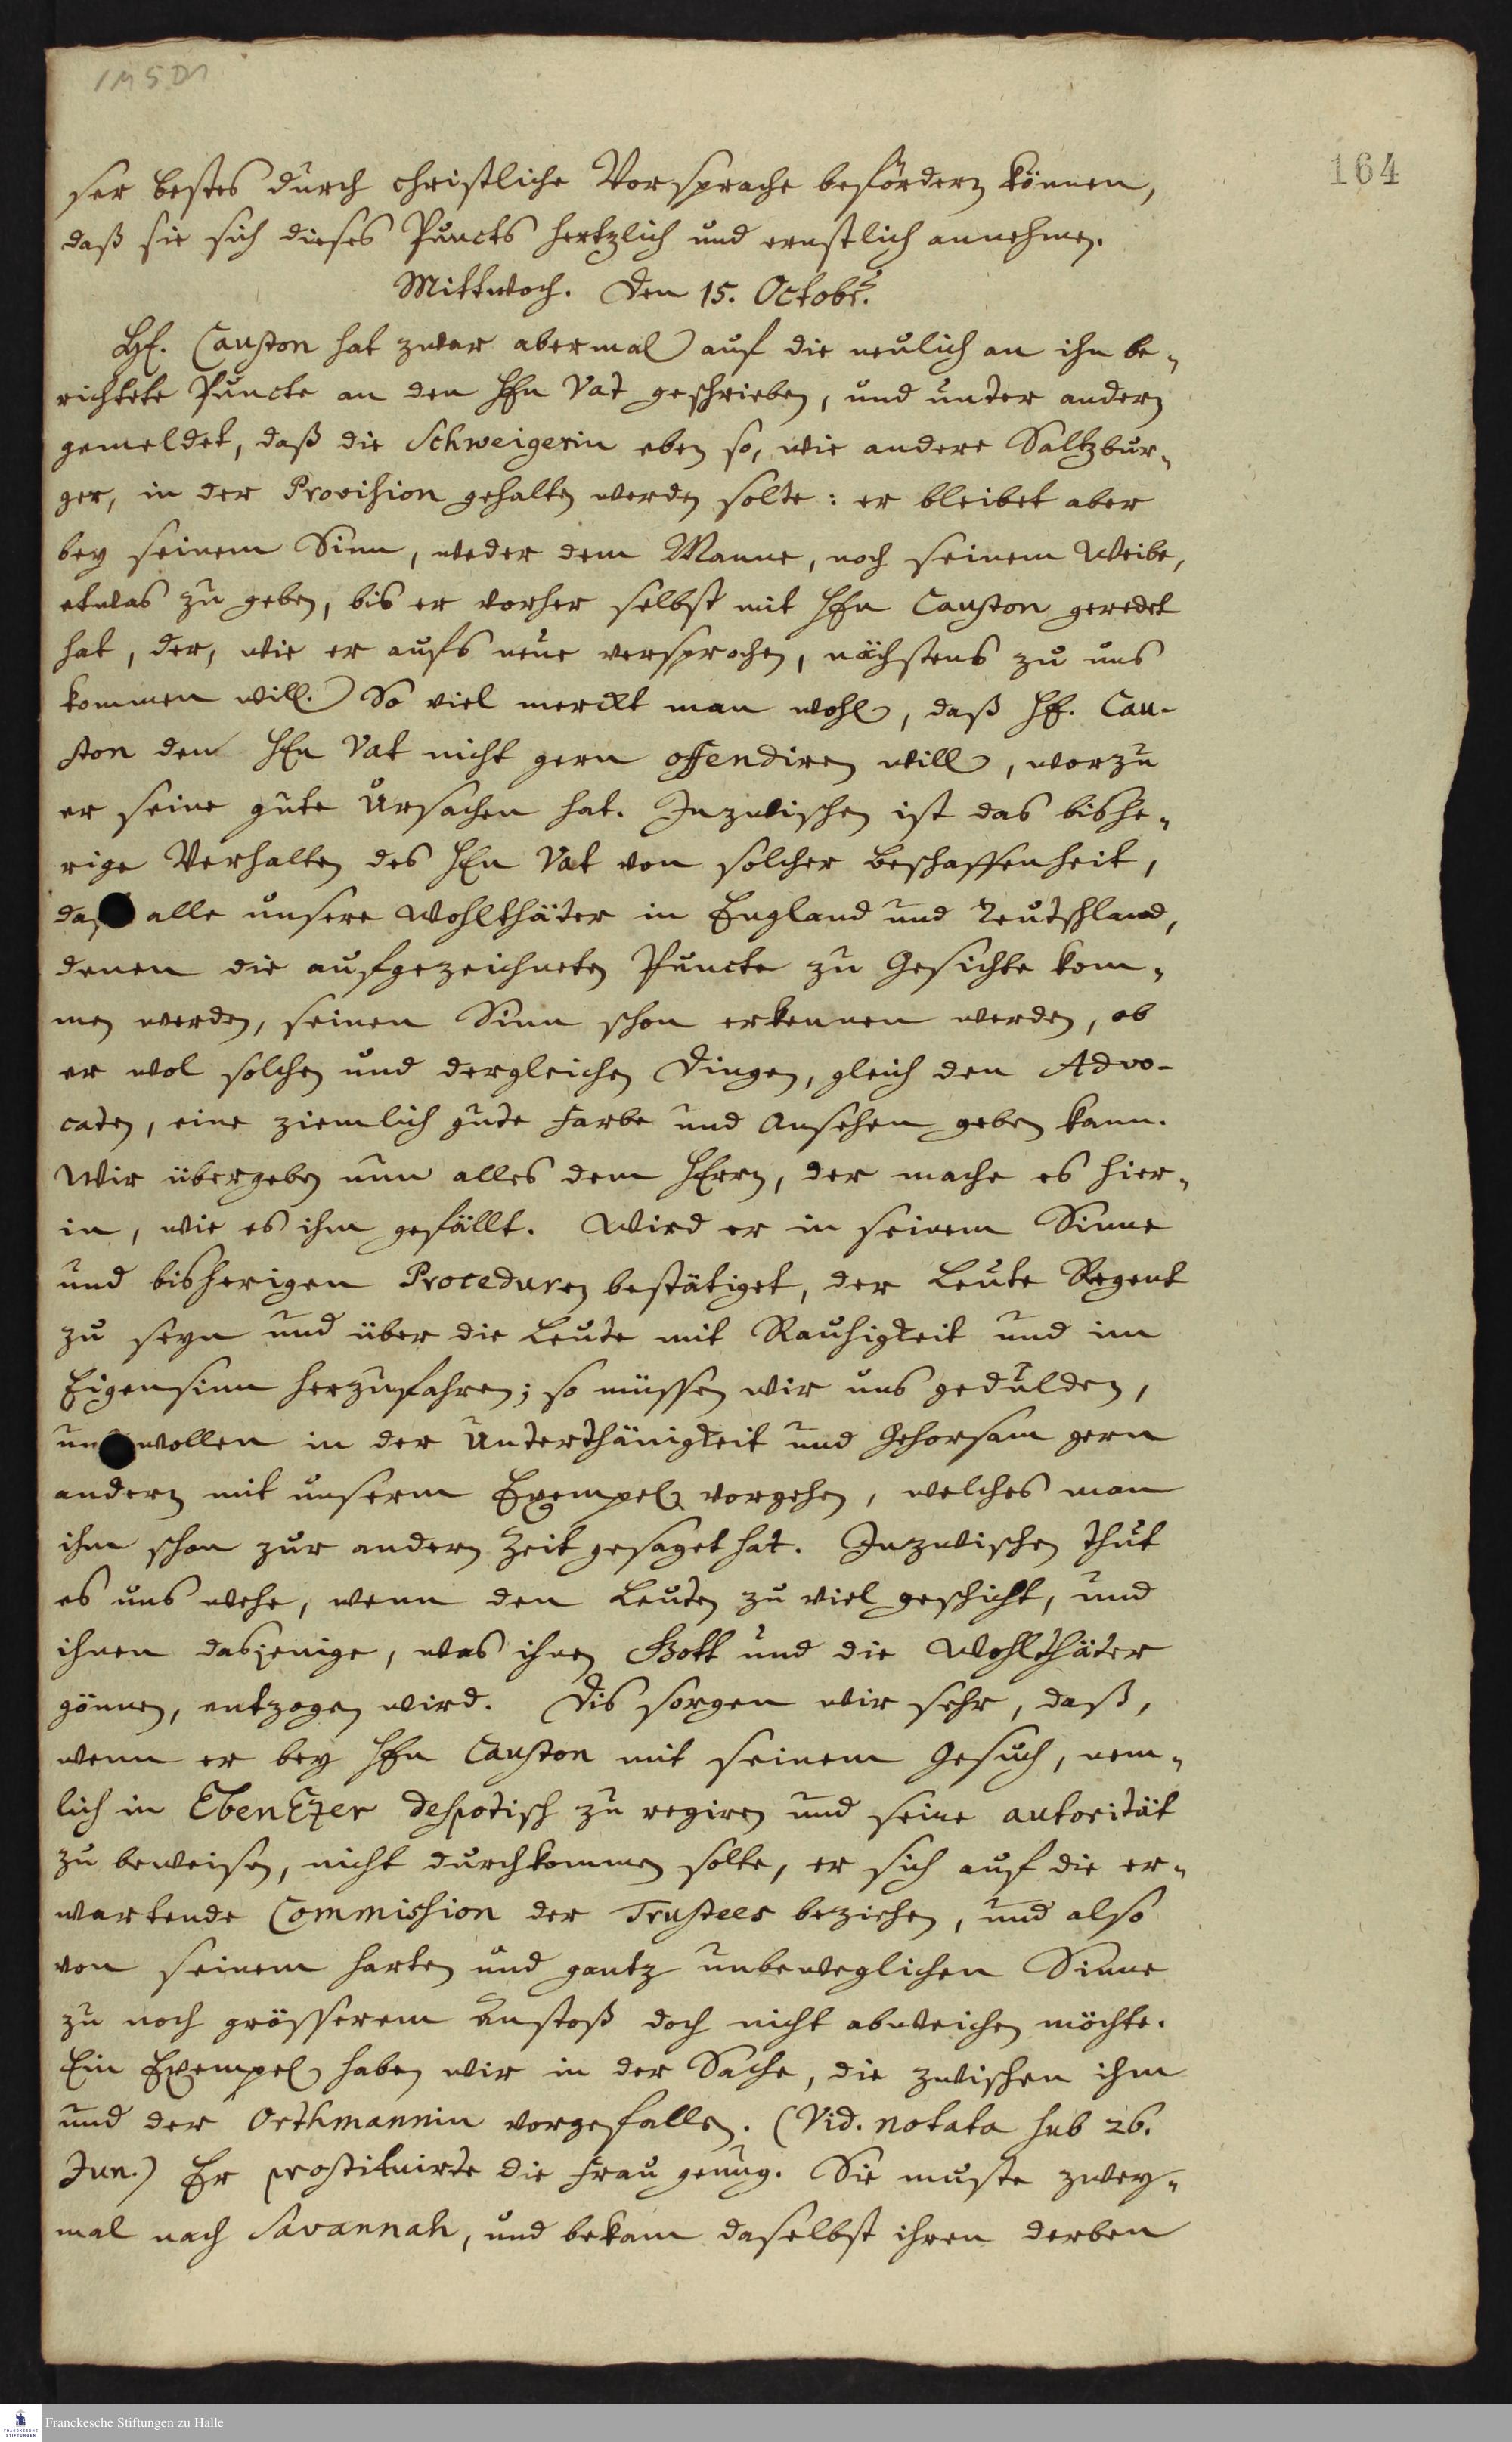 164
ser bestes durch christliche Vorsprache befördern können,
daß sie sich dieses Puncts hertzlich und ernstlich annehmen.
Mittwoch. Den 15. Octobr.
Hr. Causton hat zwar abermal auf die neulich an ihn be-
richtete Puncte an den Hrn Vat geschrieben, und unter andern
gemeldet, daß die Schweigerin eben so, wie andere Saltzbur-
ger, in der Provision gehalten werden solte: er bleibet aber
bey seinem Sinn, weder dem Manne, noch seinem Weibe,
etwas zu geben, bis er vorher selbst mit Hrn Causton geredet
hat, der, wie er aufs neue versprochen, nächstens zu uns
kommen will. So viel mercket man wohl, daß Hr. Cau-
ston den Hrn Vat nicht gern offendiren will, worzu
er seine gute Ursachen hat. Inzwischen ist das bishe-
rige Verhalten des Hrn Vat von solcher Beschaffenheit,
daß alle unsere Wohlthäter in England und Teutschland,
denen die aufgezeichneten Puncte zu Gesichte kom-
men werden, seinen Sinn schon erkennen werden, ob
er wol solchen und dergleichen Dingen, gleich den Advo-
caten, eine ziemlich gute Farbe und Ansehen geben kann.
Wir übergeben nun alles dem HErrn, der mache es hier-
in, wie es ihm gefällt. Wird er in seinem Sinne
und bisherigen Proceduren bestätiget, der Leute Regent
zu seyn und über die Leute mit Rauhigkeit und im
Eigensinn herzufahren; so müssen wir uns gedulden,
und wollen in der Unterthänigkeit und Gehorsam gern
andern mit unserm Exempel vorgehen, welches man
ihm schon zur andern Zeit gesaget hat. Inzwischen thut
es uns wehe, wenn den Leuten zu viel geschicht, und
ihnen dasjenige, was ihnen Gott und die Wohlthäter
gönnen, entzogen wird. Dis sorgen wir sehr, daß,
wenn er bey Hrn Causton mit seinem Gesuch, nem-
lich in EbenEzer despotisch zu regiren und seine autorität
zu beweisen, nicht durchkommen solte, er sich auf die er-
wartende Commission der Trustees beziehen, und also
von seinem harten und gantz unbeweglichen Sinne
zu noch grösserem Anstoß doch nicht abweichen möchte.
Ein Exempel haben wir in der Sache, die zwischen ihm
und der Orthmannin vorgefallen. (Vid. notata sub 26.
Jun.) Er prostituirte die Frau genug. Sie muste zwey-
mal nach Savannah, und bekam daselbst ihren derben
Franckesche Stiftungen zu Halle